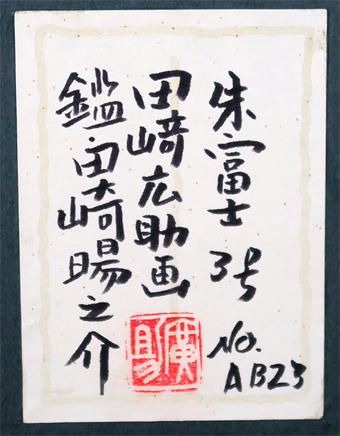 朱富士 3号
No.
AB23
田崎広助画
廣助
鑑.田崎暘之介